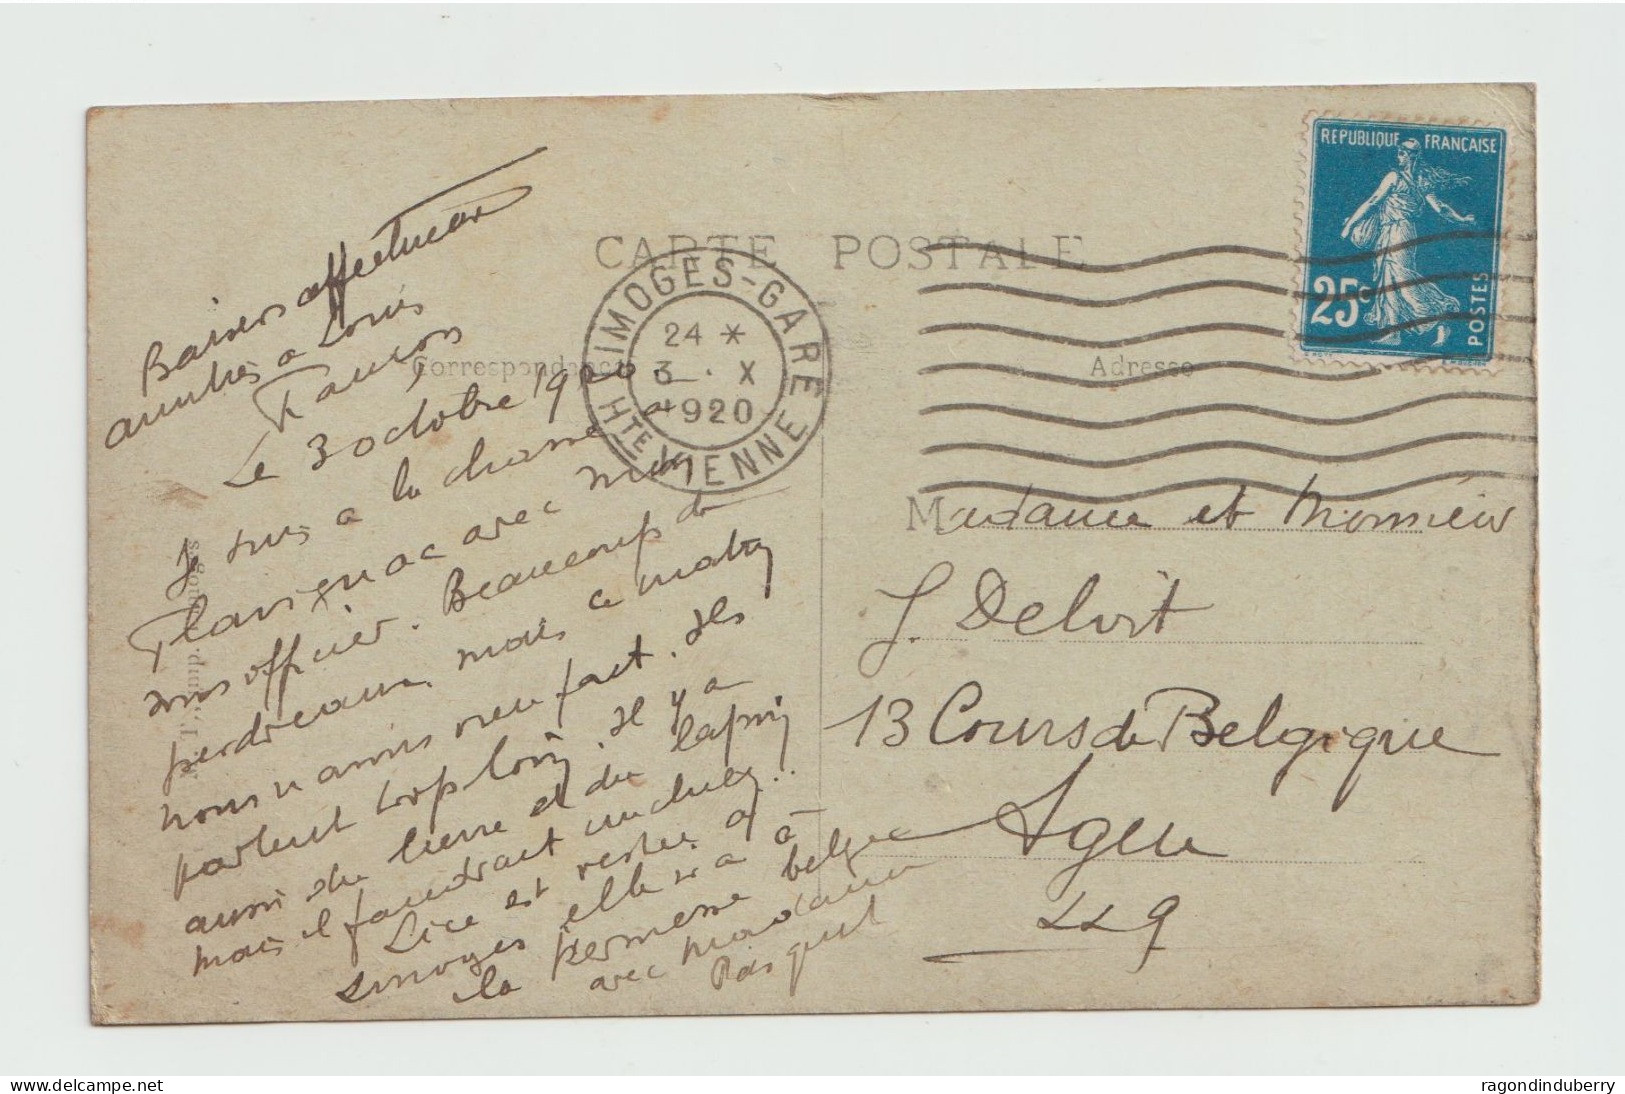 CARTE POSTALE
Correspondance
Adresse
REPUBLIQUE FRANÇAISE
25c
POSTES
LIMOGES-GARE
24 *
3 . X
1920
HTE VIENNE
Baisers affectueux
à Louis
Le 3 octobre 1920.
Je suis a la chasse a
Flavignac avec
sous officier. Beaucoup de
perdreaux mais ce matin
nous n avons rien fait. Ils
partent trop loin. Il y a
aussi du lierre et du lapin
mais il faudrait un chien..
Lice est restée a
Limoges elle va a
la kermesse belge
avec Madame
Pasquet
Madame et Monsieur
J. Deloit
13 Cours de Belgique
Agen
L&G
ragondinduberry
© delcampe.net